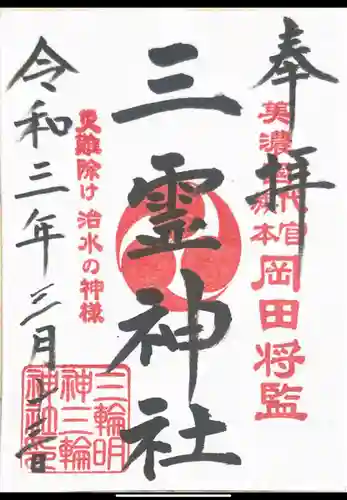 奉拝
美濃国代官
旗本 岡田将監
三霊神社
災難除け 治水の神様
令和三年三月十三日
三輪明
神三輪
神社